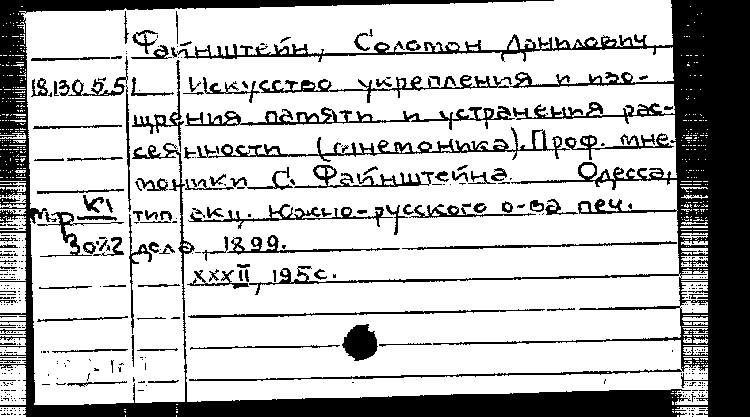 Файнштейн, Соломон Данилович,
18.130.5.51 Искусство укрепления и изо-
щрения памяти и устранения рас-
сеянности (мнемоника). Проф. мне-
моники С. Файнштейна. Одесса,
тип. акц. Южно-русского о-ва печ.
дела, 1899.
XXXII, 195 с.